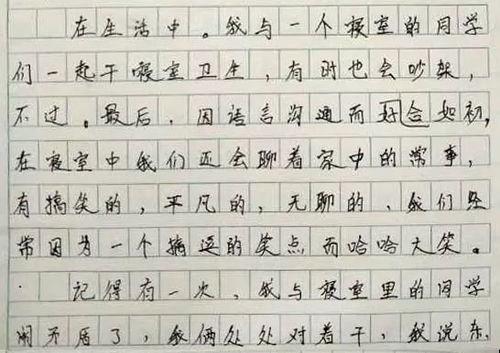 在生活中。我与一个寝室的同学
们一起干寝室卫生，有时也会吵架，
不过。最后，因语言沟通而好合如初，
在寝室中我们还会聊着家中的常事，
有搞笑的，平凡的，无聊的、我们经
常因为一个搞逗的笑点而哈哈大笑。
记得有一次，我与寝室里的同学
闹矛盾了，我俩处处对着干，我说东，